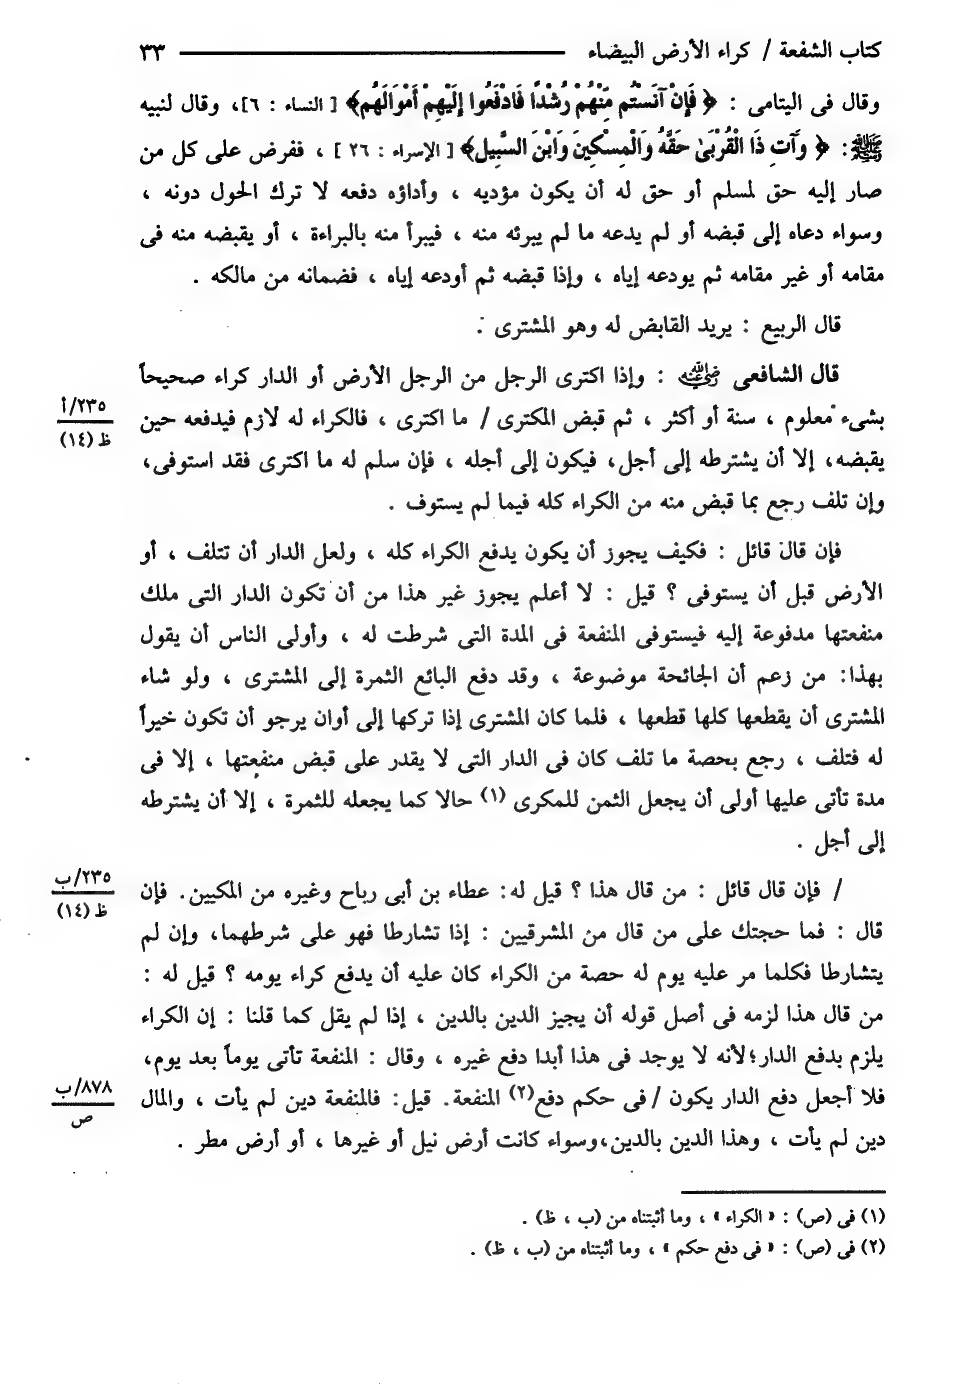 كتاب الشفعة / كراء الأرض البيضاء ٣٣
وقال فى اليتامى : ﴿ فَإِنْ آنَسْتُم مِّنْهُمْ رُشْدًا فَادْفَعُوا إِلَيْهِمْ أَمْوَالَهُمْ﴾ [ النساء : ٦]، وقال لنبيه
ﷺ: ﴿ وَآتِ ذَا الْقُرْبَىٰ حَقَّهُ وَالْمِسْكِينَ وَابْنَ السَّبِيلِ﴾ [ الإسراء : ٢٦ ] ، ففرض على كل من
صار إليه حق لمسلم أو حق له أن يكون مؤديه ، وأداؤه دفعه لا ترك الحول دونه ،
وسواء دعاه إلى قبضه أو لم يدعه ما لم يبرئه منه ، فيبرأ منه بالبراءة ، أو يقبضه منه فى
مقامه أو غير مقامه ثم يودعه إياه ، وإذا قبضه ثم أودعه إياه ، فضمانه من مالكه .
قال الربيع : يريد القابض له وهو المشترى .
قال الشافعى رضي الله عنه : وإذا اكترى الرجل من الرجل الأرض أو الدار كراء صحيحاً
بشىء معلوم ، سنة أو أكثر ، ثم قبض المكترى / ما اكترى ، فالكراء له لازم فيدفعه حين
٢٣٥/أ
ظ (١٤)
يقبضه، إلا أن يشترطه إلى أجل، فيكون إلى أجله ، فإن سلم له ما اكترى فقد استوفى،
وإن تلف رجع بما قبض منه من الكراء كله فيما لم يستوف .
فإن قال قائل : فكيف يجوز أن يكون يدفع الكراء كله ، ولعل الدار أن تتلف ، أو
الأرض قبل أن يستوفى ؟ قيل : لا أعلم يجوز غير هذا من أن تكون الدار التى ملك
منفعتها مدفوعة إليه فيستوفى المنفعة فى المدة التى شرطت له ، وأولى الناس أن يقول
بهذا: من زعم أن الجائحة موضوعة ، وقد دفع البائع الثمرة إلى المشترى ، ولو شاء
المشترى أن يقطعها كلها قطعها ، فلما كان المشترى إذا تركها إلى أوان يرجو أن تكون خيراً
له فتلف ، رجع بحصة ما تلف كان فى الدار التى لا يقدر على قبض منفعتها ، إلا فى
مدة تأتى عليها أولى أن يجعل الثمن للمكرى (١) حالا كما يجعله للثمرة ، إلا أن يشترطه
إلى أجل .
/ فإن قال قائل : من قال هذا ؟ قيل له: عطاء بن أبى رباح وغيره من المكيين. فإن
٢٣٥/ب
ظ (١٤)
قال : فما حجتك على من قال من المشرقيين : إذا تشارطا فهو على شرطهما، وإن لم
يتشارطا فكلما مر عليه يوم له حصة من الكراء كان عليه أن يدفع كراء يومه ؟ قيل له :
من قال هذا لزمه فى أصل قوله أن يجيز الدين بالدين ، إذا لم يقل كما قلنا : إن الكراء
يلزم بدفع الدار؛لأنه لا يوجد فى هذا أبدا دفع غيره ، وقال : المنفعة تأتى يوماً بعد يوم،
فلا أجعل دفع الدار يكون / فى حكم دفع(٢) المنفعة. قيل: فالمنفعة دين لم يأت ، والمال
٨٧٨/ب
ص
دين لم يأت ، وهذا الدين بالدين،وسواء كانت أرض نيل أو غيرها ، أو أرض مطر .
(١) فى (ص) : « الكراء » ، وما أثبتناه من (ب ، ظ) .
(٢) فى (ص) : « فى دفع حكم » ، وما أثبتناه من (ب ، ظ) .